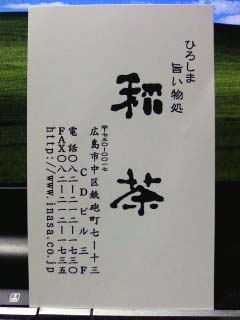 ひろしま
旨い物処
和茶
〒七三〇-〇〇一七
広島市中区鉄砲町七-十三
CDビル三F
電話〇八二-二一二-一一七三〇
FAX〇八二-二一二-一一七三五
http://www.inasa.co.jp